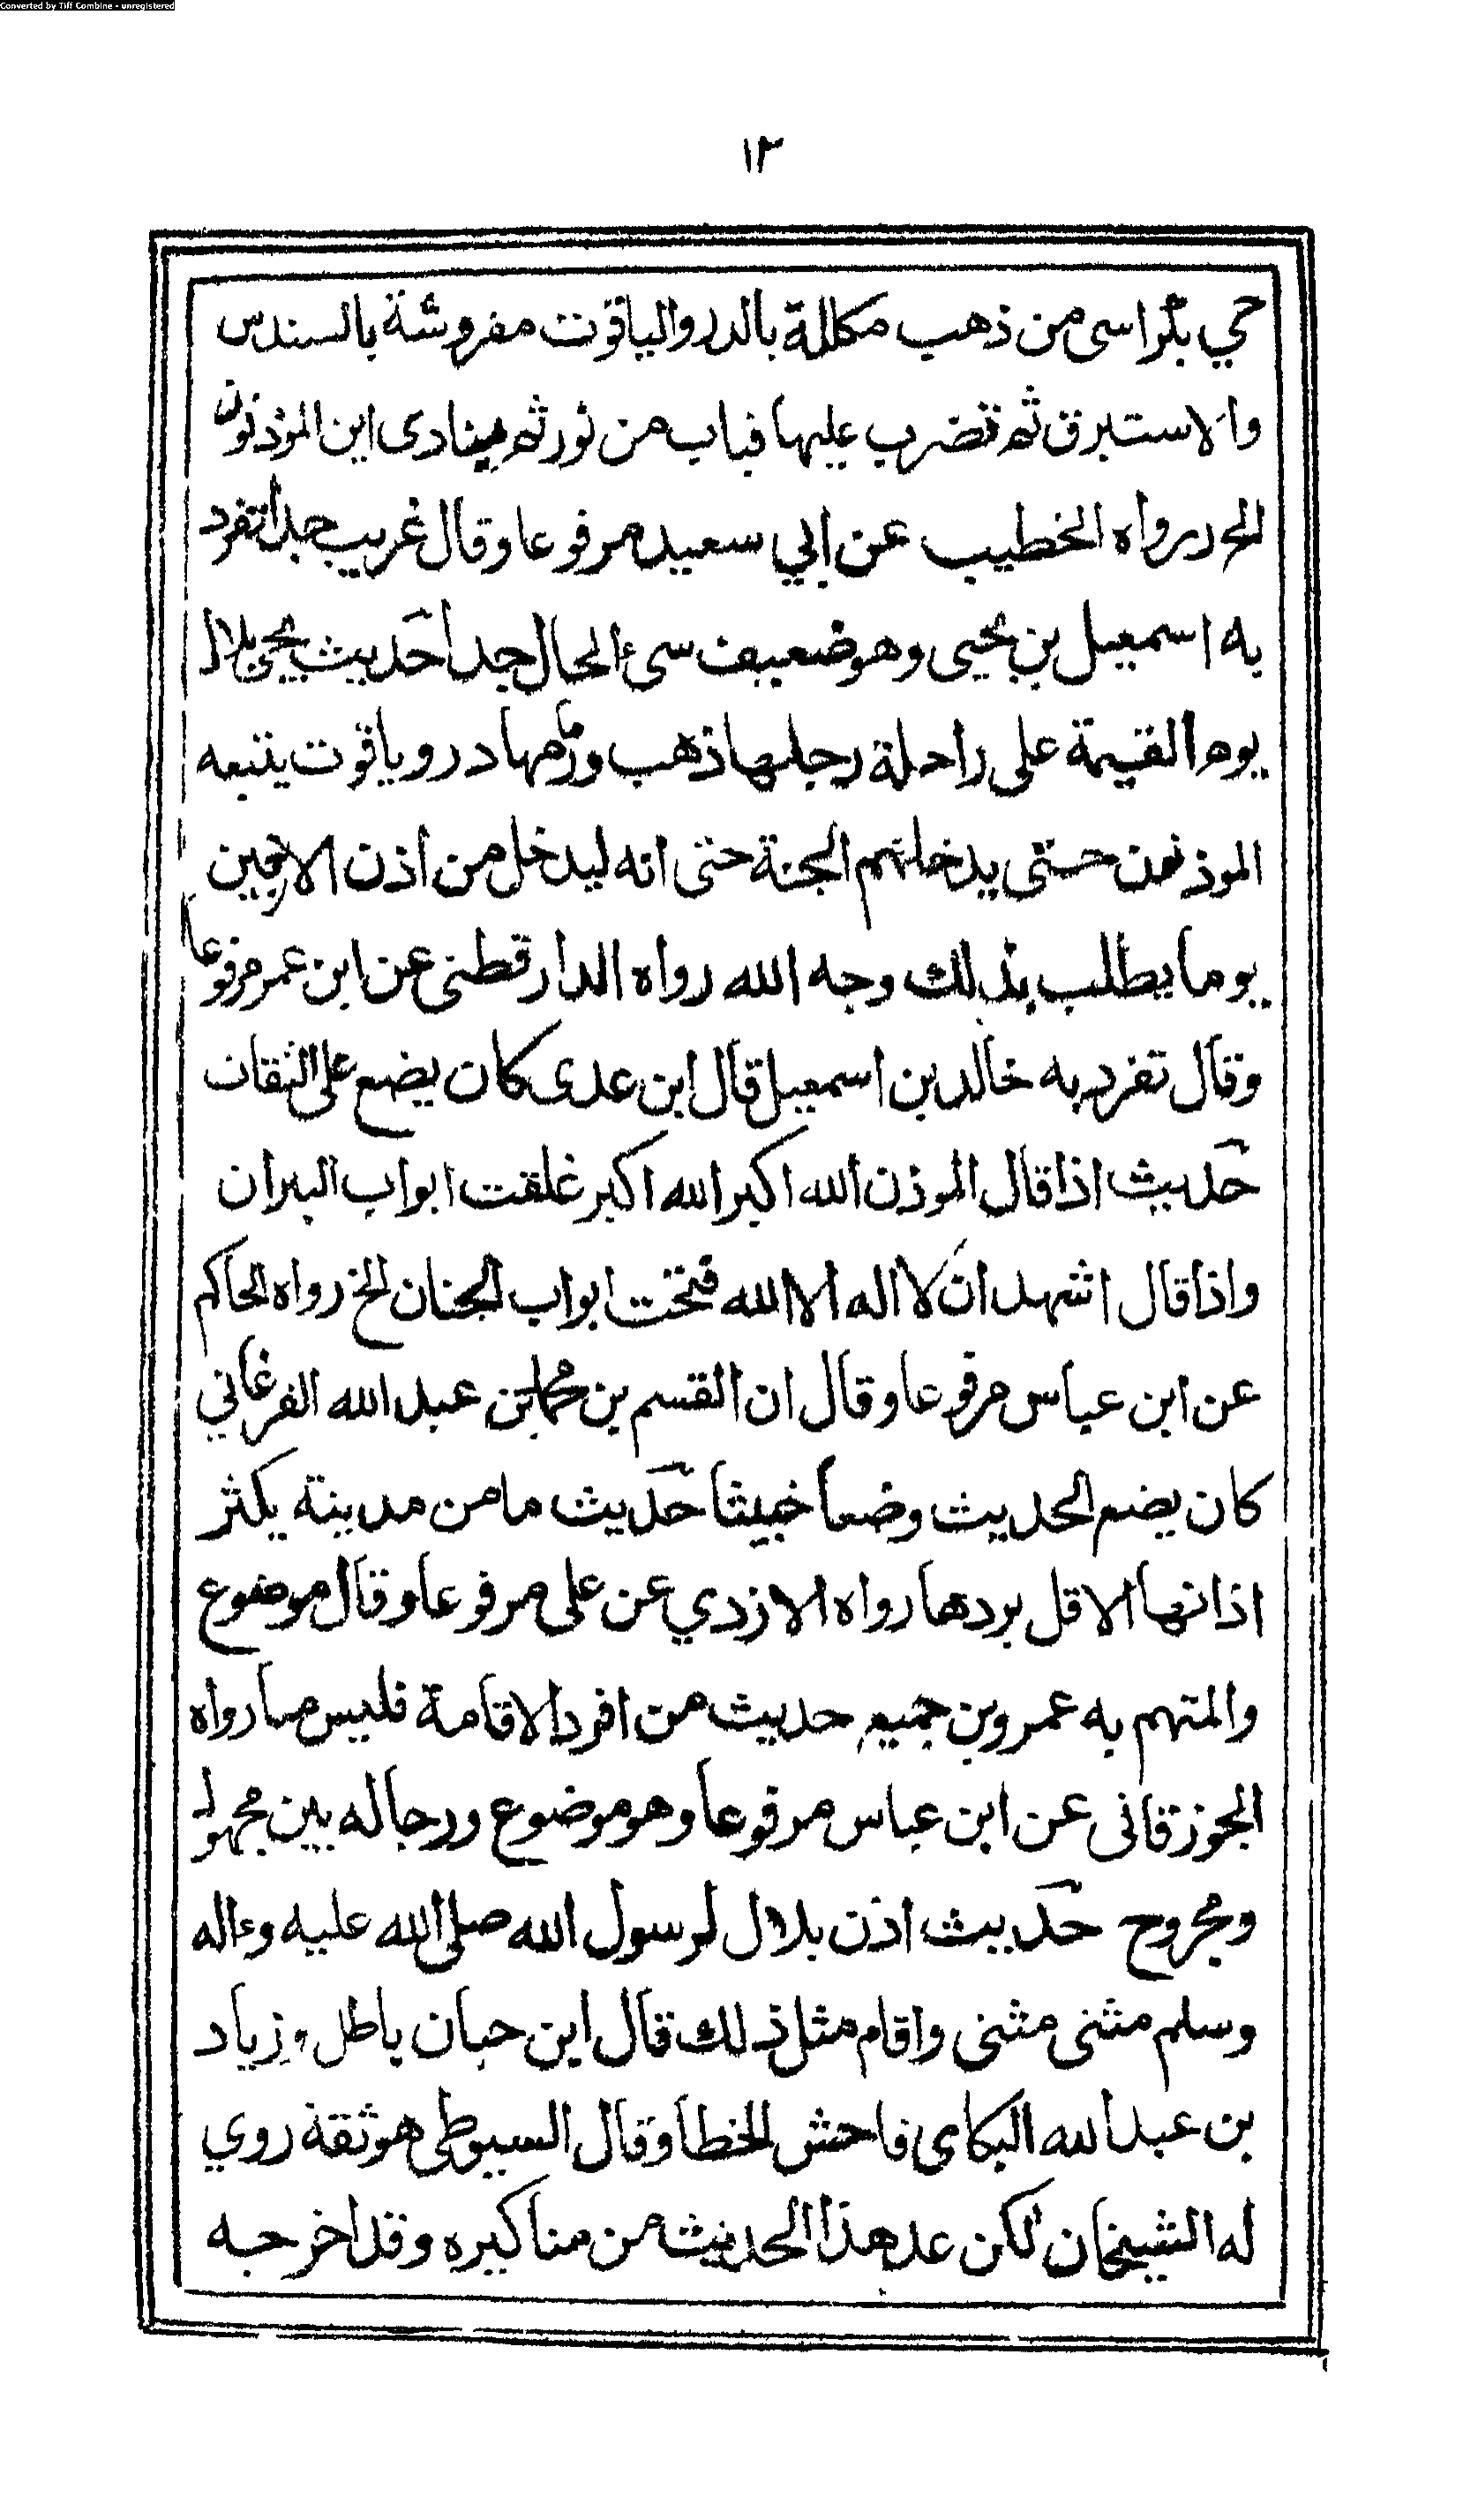 Converted by Tiff Combine - unregistered
١٢
جي بكراسى من ذهب مكللة بالدر والياقوت مفروشة بالسندس
والاستبرق ثم تضرب عليها قباب من نور ثم ينادى اين المؤذنون
الخ رواه الخطيب عن ابي سعيد مرفوعا وقال غريب جدا تفرد
به اسمعيل بن يحيى وهو ضعيف سىء الحال جدا حديث يجى بلال
يوم القيمة على راحلة رحلها ذهب وزمامها در وياقوت يتبعه
الموذنون حتى يدخلهم الجنة حتى انه ليدخل من اذن الاربعين
يوما يطلب بذلك وجه الله رواه الدارقطنى عن ابن عمر مرفوعا
وقال تفرد به خالد بن اسمعيل قال ابن عدى كان يضع على الثقات
حديث اذا قال الموذن الله اكبر الله اكبر غلقت ابواب النيران
واذا قال اشهد ان لا اله الا الله فتحت ابواب الجنان الخ رواه الحاكم
عن ابن عباس مرفوعا وقال ان القسم بن محمد بن عبد الله الفرغاني
كان يضع الحديث وضعا خبيثا حديث ما من مدينة يكثر
اذانها الا قل بردها رواه الازدي عن على مرفوعا وقال موضوع
والمتهم به عمرو بن جميع حديث من افرد الاقامة فليس منا رواه
الجوزقانى عن ابن عباس مرفوعا وهو موضوع ورجاله بين مجهول
ومجروح حديث اذن بلال لرسول الله صلى الله عليه وءاله
وسلم مثنى مثنى واقام مثل ذلك قال ابن حبان باطل وزياد
بن عبد الله البكاى فاحش الخطا وقال السيوطى هو ثقة روي
له الشيخان لكن عد هذا الحديث من مناكيره وقد اخرجه